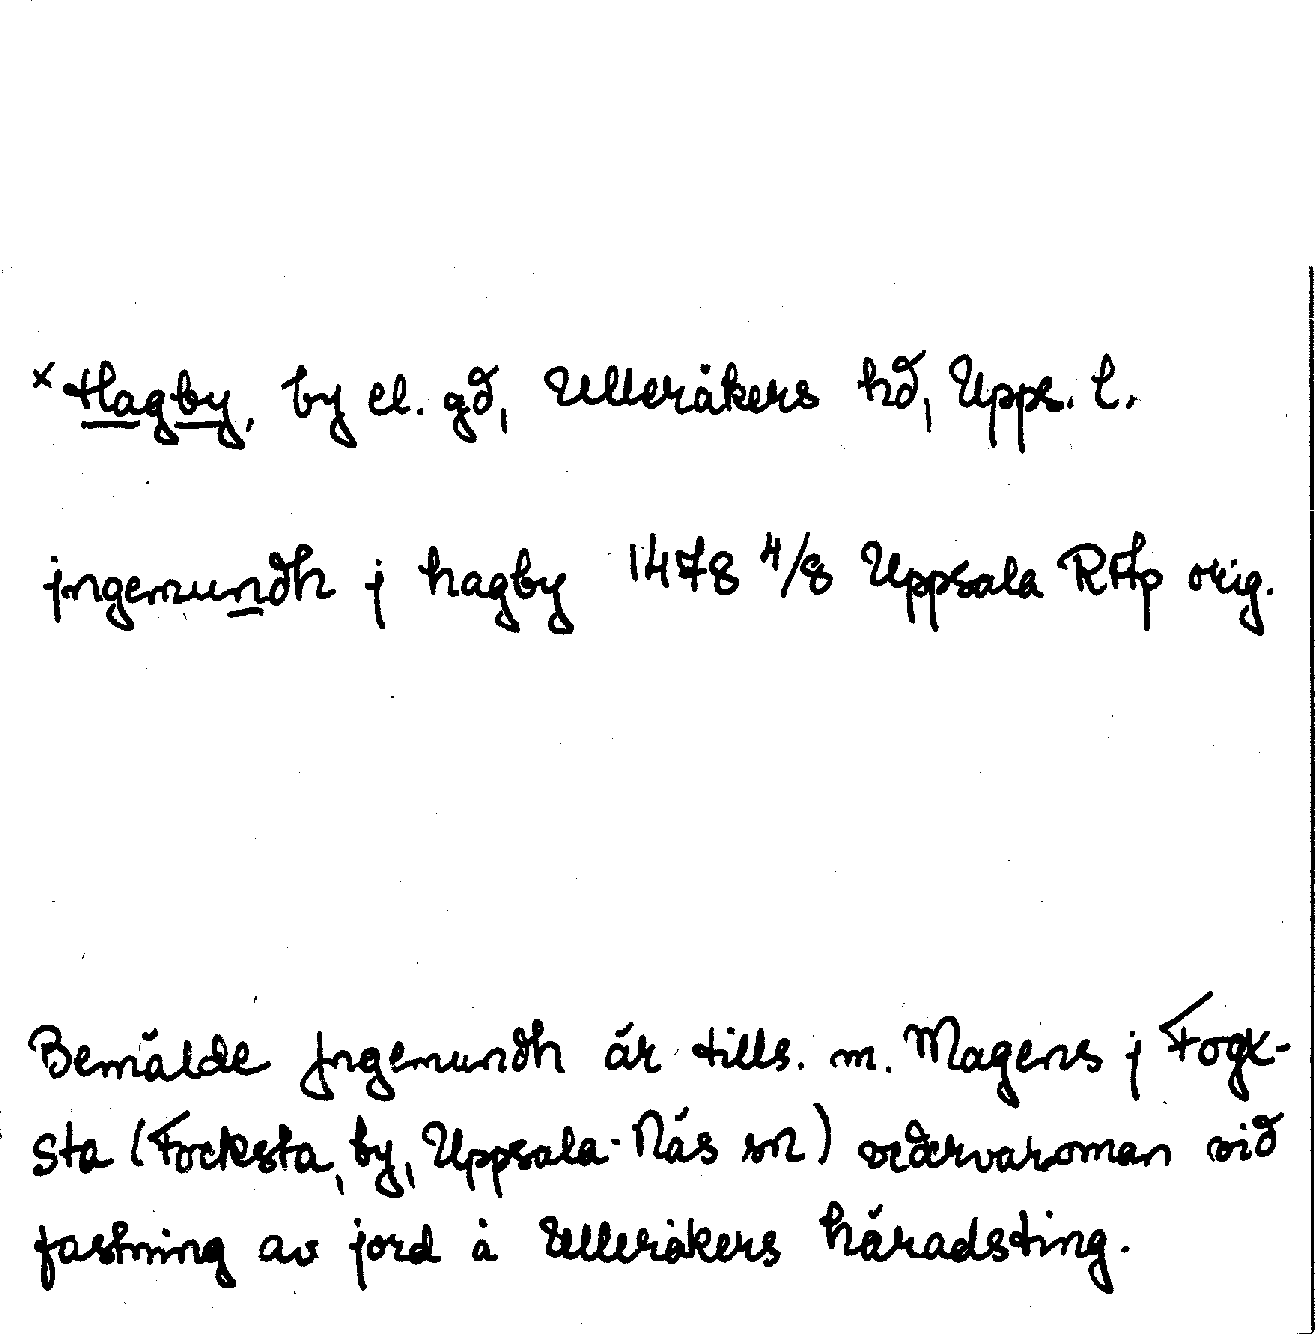 x Hagby, by el. gd, Ulleråkers hd, Upps. l.
jngemundh j hagby 1478 4/8 Uppsala RAp orig.
Bemälde Jngemundh är tills. m. Magens j Fogk-
sta (Focksta, by, Uppsala-Näs sn) vedervaruman vid
fastning av jord å Ulleråkers häradsting.